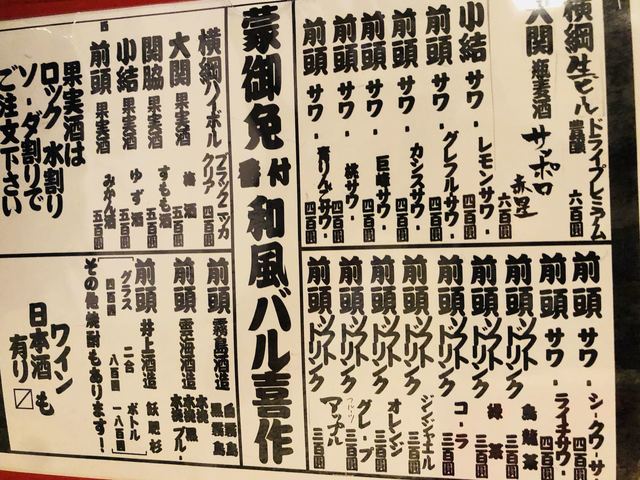 横綱 生ビール ドライプレミアム 豊醸 六百圓
大関 瓶麦酒 サッポロ 赤星 六百圓
小結 サワー レモンサワー 四百圓
前頭 サワー グレフルサワー 四百圓
前頭 サワー カシスサワー 四百圓
前頭 サワー 巨峰サワー 四百圓
前頭 サワー 桃サワー 四百圓
前頭 サワー 青りんごサワー 四百圓
前頭 サワー シークワーサー 四百圓
前頭 サワー ライチサワー 四百圓
前頭 ソフトドリンク 烏龍茶 三百圓
前頭 ソフトドリンク 緑茶 三百圓
前頭 ソフトドリンク コーラ 三百圓
前頭 ソフトドリンク ジンジャエール 三百圓
前頭 ソフトドリンク オレンジ 三百圓
前頭 ソフトドリンク グレープ 三百圓
前頭 ソフトドリンク アップル 三百圓
蒙御免 番付 和風バル喜作
西
横綱 ハイボール ブラックニッカクリア 四百圓
大関 果実酒 梅酒 五百圓
関脇 果実酒 すもも酒 五百圓
小結 果実酒 ゆず酒 五百圓
前頭 果実酒 みかん酒 五百圓
果実酒は
ロック 水割り
ソーダ割りで
ご注文下さい
前頭 霧島酒造 白霧島 黒霧島
前頭 雲海酒造 木挽ブルー 木挽黒
前頭 井上酒造 飫肥杉
グラス 二合 ボトル
四百圓 八百圓 一八百圓
その他焼酎もあります!
ワイン
日本酒も
有り〼